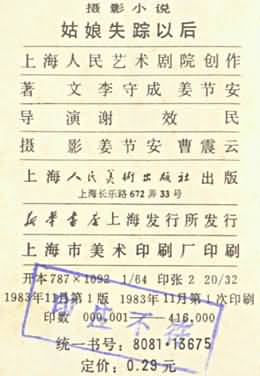 摄影小说
姑娘失踪以后
上海人民艺术剧院创作
著 文李守成 姜节安
导 演谢 效 民
摄 影姜节安 曹震云
上海人民美術出版社 出版
上海长乐路672弄33号
新华書店上海发行所发行
上海市美术印刷厂印刷
开本787×1092 1/64 印张2 20/32
1983年11月第1版 1983年11月第1次印刷
印数 000,001——416,000
统一书号:8081·13675
定价:0.29元